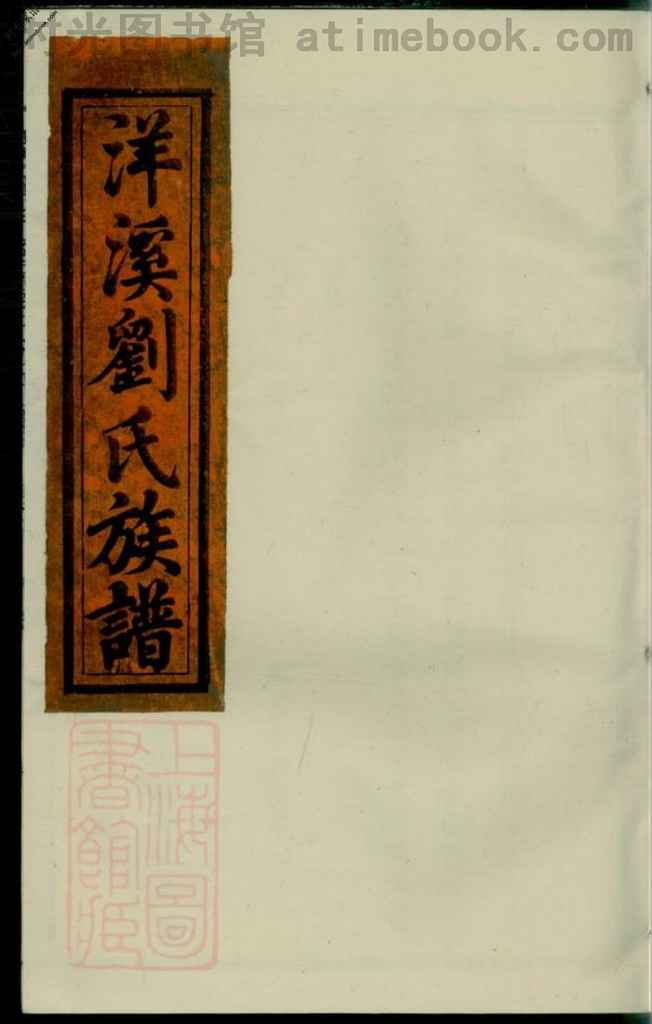 时光图书馆 atimebook.com
洋溪劉氏族譜
上海圖
書館藏